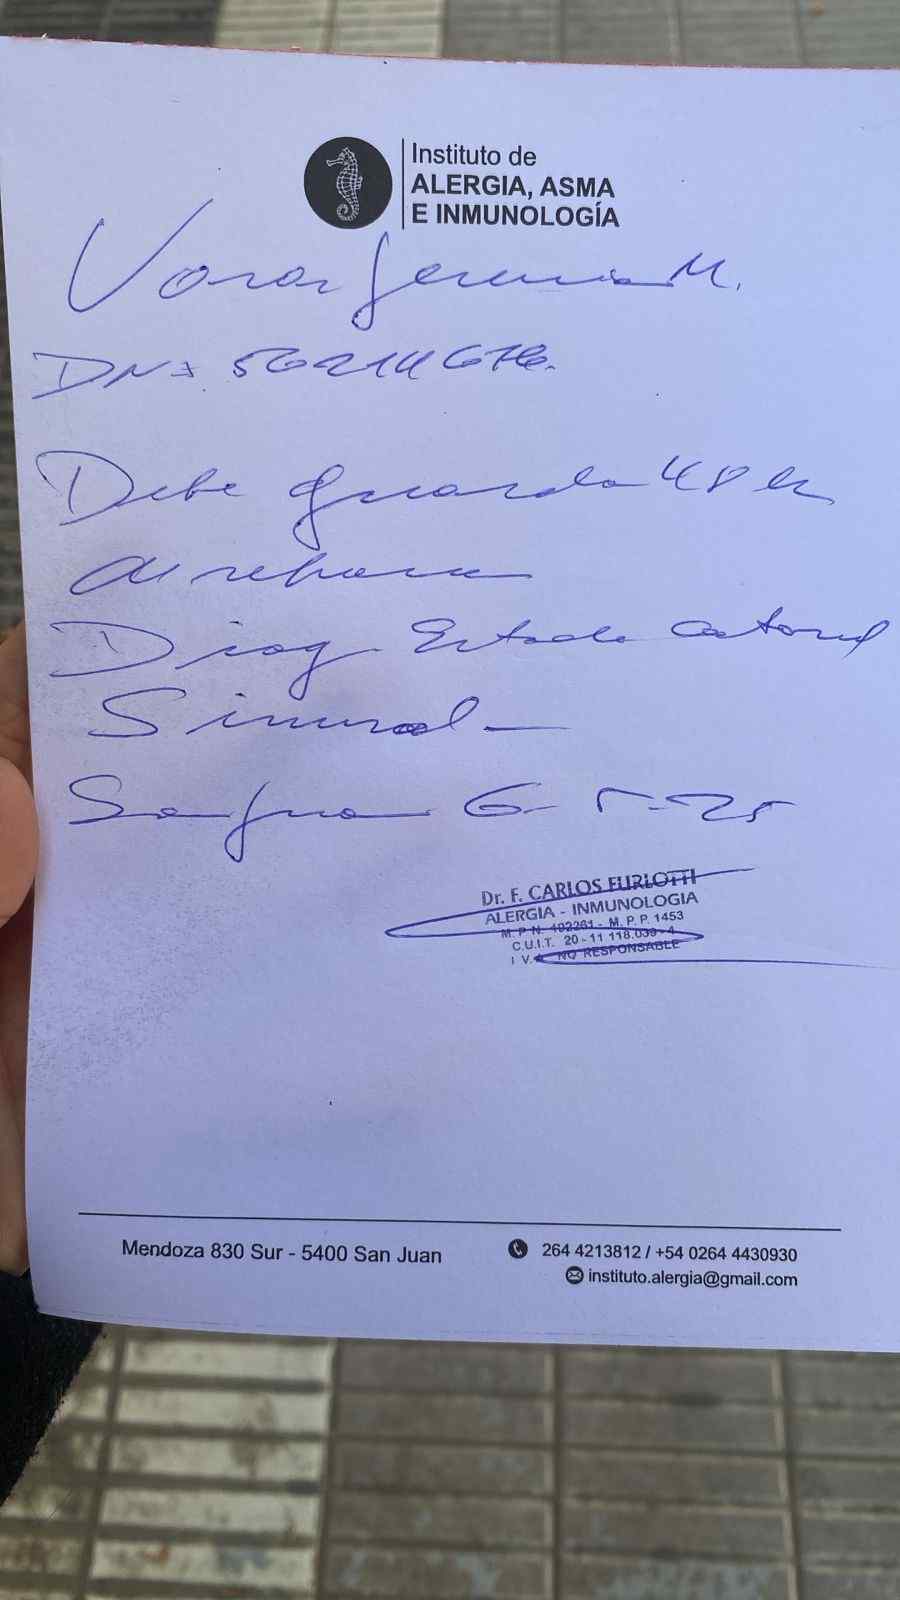 Instituto de
ALERGIA, ASMA
E INMUNOLOGÍA
M.
DNI 56214676.
Debe guardar 48 hs
de reposo
Diag. Estado Catarral
Sinusal -
San Juan 6-5-25
Dr. F. CARLOS FURLOTTI
ALERGIA - INMUNOLOGIA
M. P. N. 492261 - M. P. P. 1453
C.U.I.T. 20 - 11 118.039 - 4
I V.A. NO RESPONSABLE
Mendoza 830 Sur - 5400 San Juan
264 4213812 / +54 0264 4430930
instituto.alergia@gmail.com